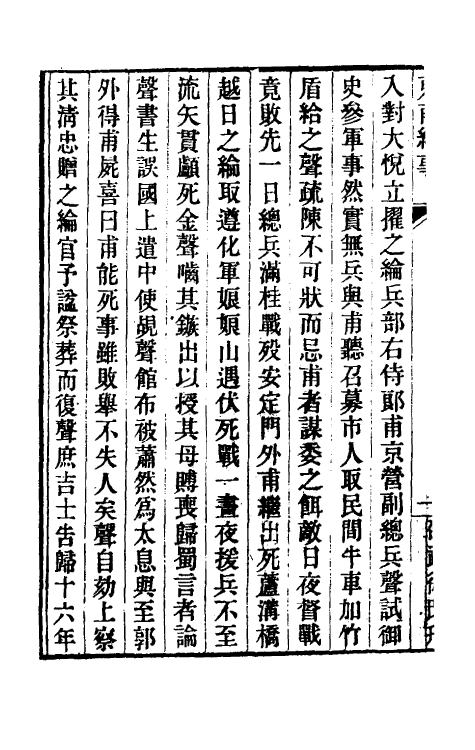 入對大悅立擢之綸兵部右侍郎甫京營副總兵聲試御
史參軍事然實無兵與甫聽召募市人取民間牛車加竹
盾給之聲疏陳不可狀而忌甫者謀委之餌敵日夜督戰
竟敗先一日總兵滿桂戰歿安定門外甫繼出死蘆溝橋
越日之綸取遵化軍娘娘山遇伏死戰一晝夜援兵不至
流矢貫顱死金聲嚙其鏃出以授其母賻喪歸蜀言者論
聲書生誤國上遣中使覘聲館布被蕭然爲太息與至郭
外得甫屍喜曰甫能死事雖敗舉不失人矣聲自劾上察
其淸忠贈之綸官予諡祭葬而復聲庶吉士告歸十六年